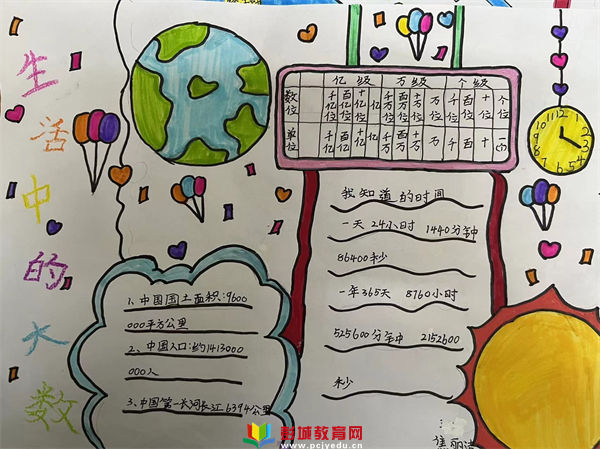 生活中的大数
亿级 万级 个级
数位 千亿位 百亿位 十亿位 亿位 千万位 百万位 十万位 万位 千位 百位 十位 个位
单位 千亿 百亿 十亿 亿 千万 百万 十万 万 千 百 十 一(个)
10 11 12 1 2 3 4 5 6 7 8 9
我知道的时间
一天 24小时 1440分钟
86400秒
一年365天 8760小时
525600分钟 2152600
秒
1、中国国土面积:9600
000平方公里
2、中国人口:约1413000
000人
3、中国第一长河长江6394公里
彭城教育网
www.pcjyedu.cn